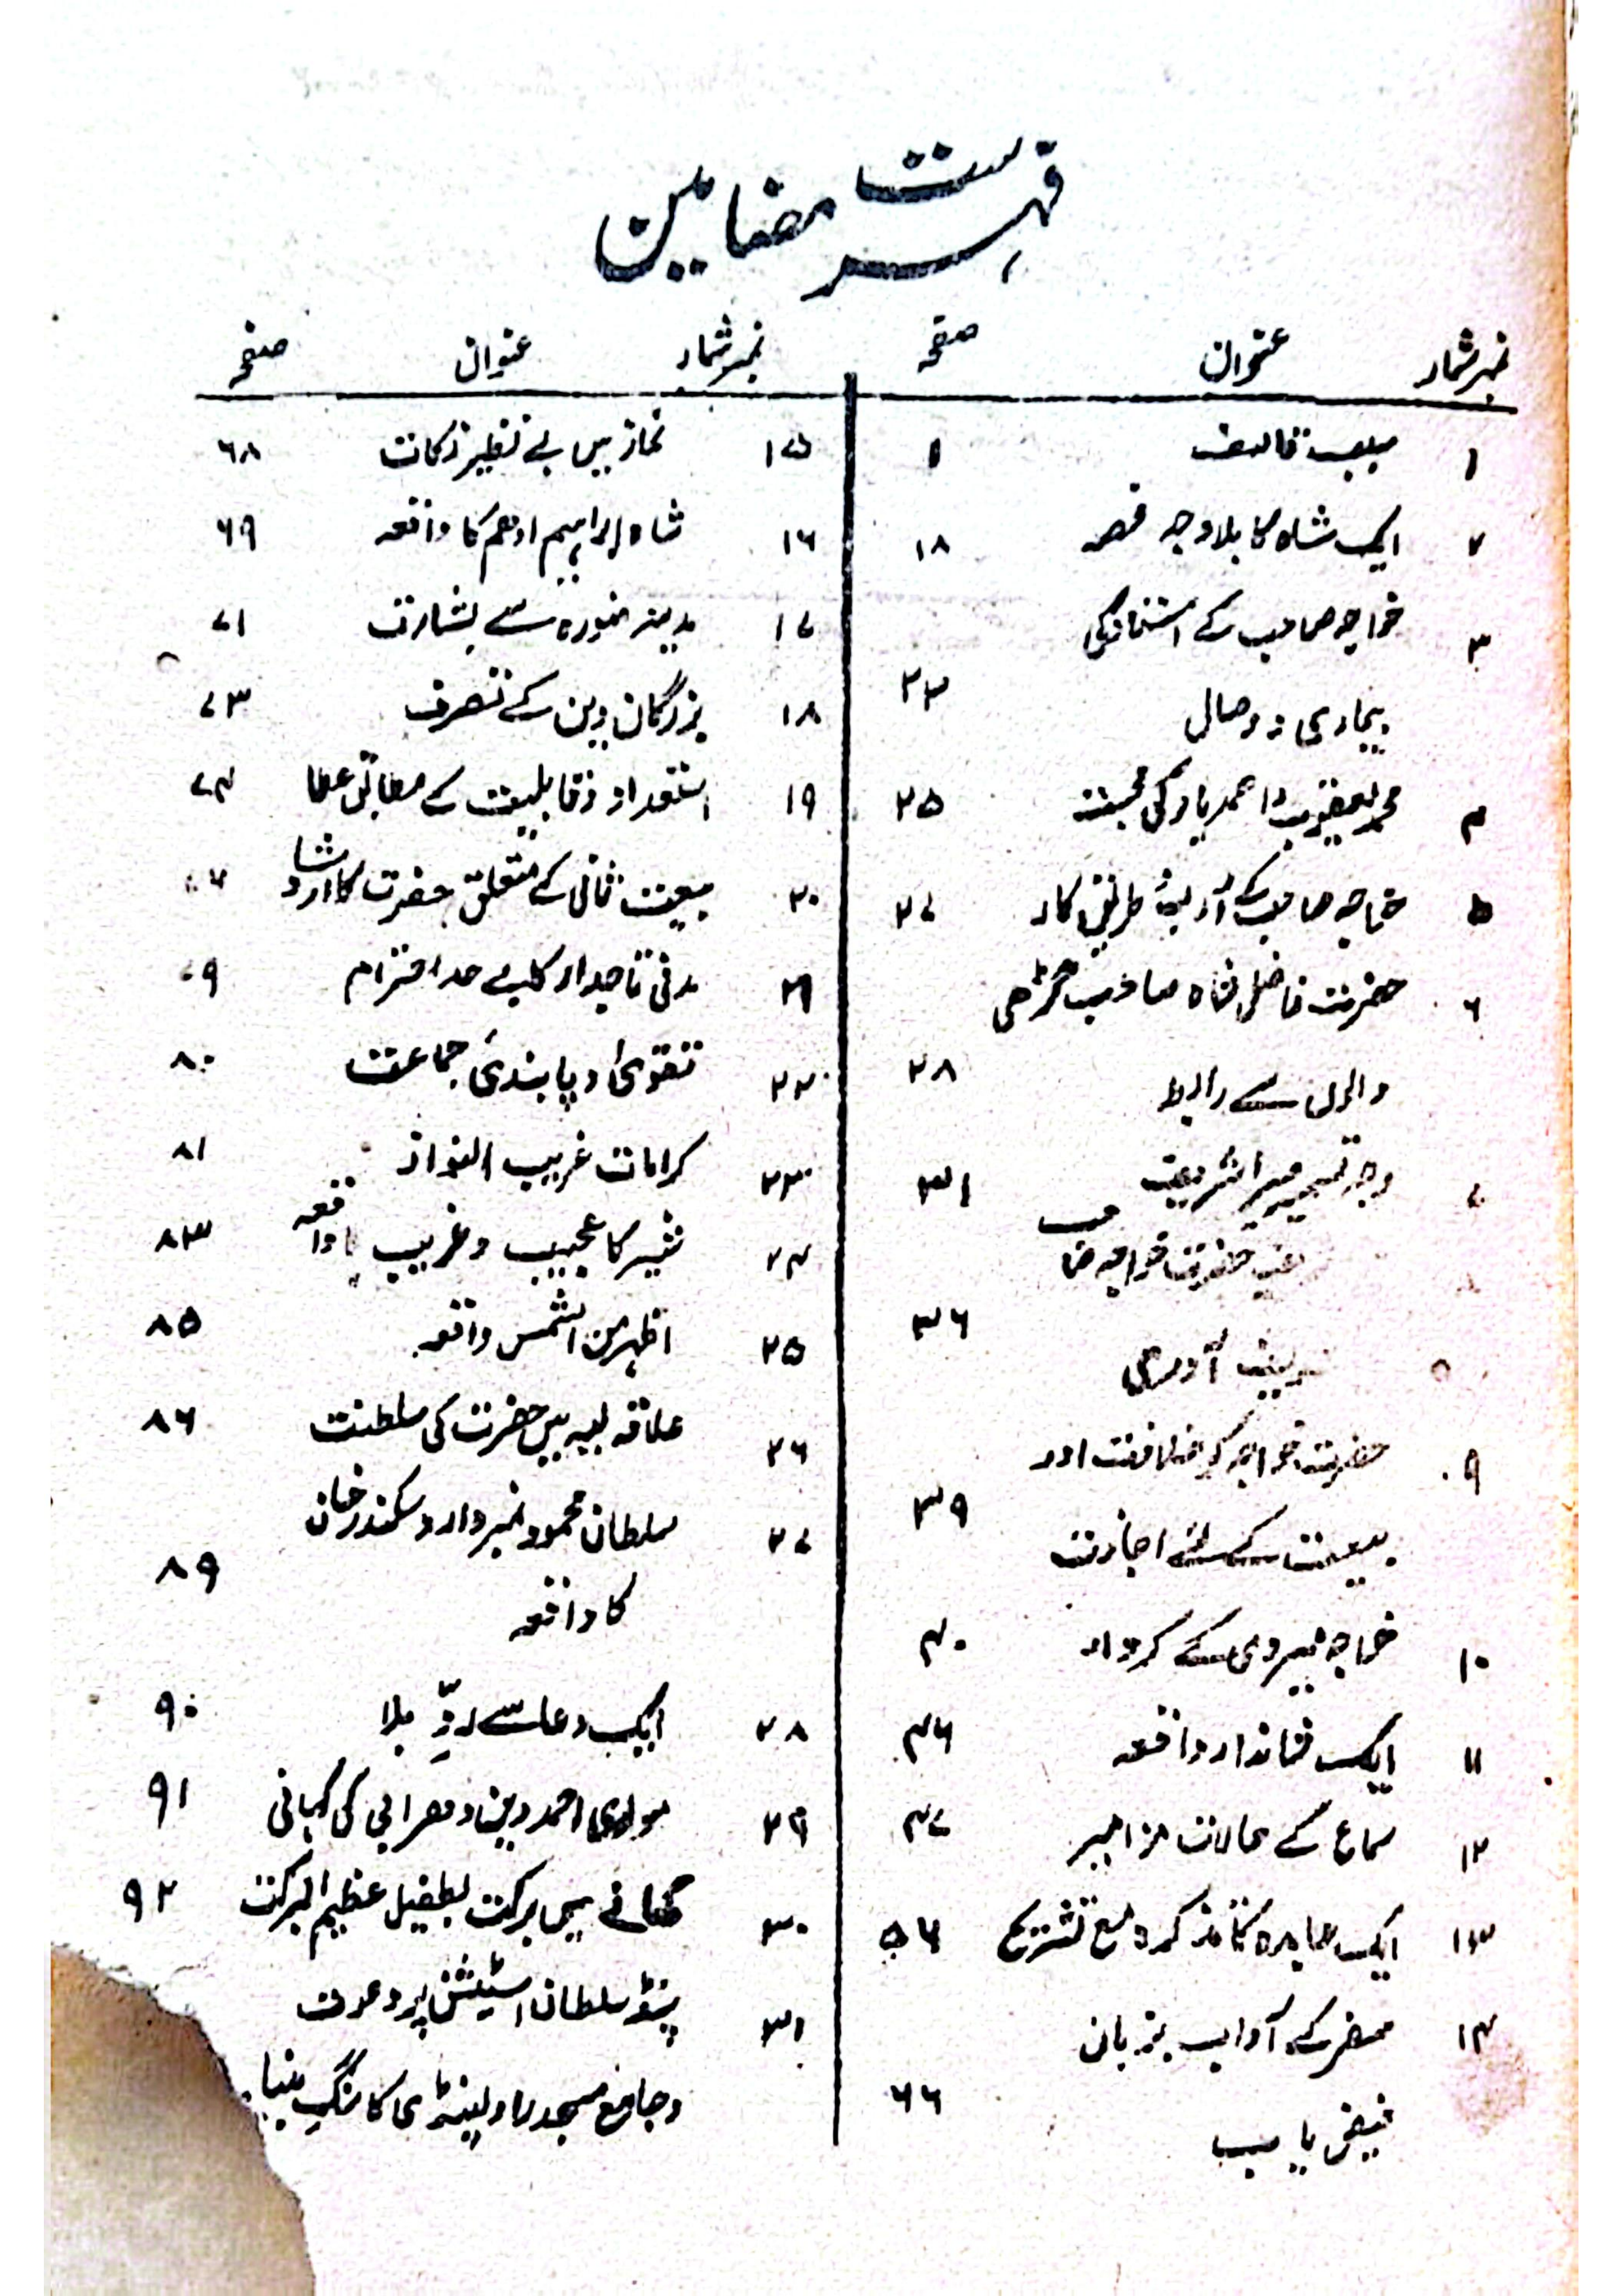 فہرست مضامین
نمبر شمار عنوان صفحہ
۱ سبب تالیف ۱
۲ ایک شاہ کا بلاوجہ غصہ ۱۸
۳ خواجہ صاحب کے استاد کی
بیماری و وصال ۲۳
۴ محمد یعقوب و احمد یار کی محبت ۲۵
۵ خواجہ صاحب کے طریق کار ۲۷
۶ حضرت فاضل شاہ صاحب گڑھی
والوں سے رابطہ ۲۸
۷ وجہ تسمیہ میرا شریف ۳۱
حضرت خواجہ صا حب
آوری ۳۶
۹ حضرت خواجہ کو خلافت اور
بیعت کے لئے اجازت ۳۹
۱۰ خواجہ میروی کے کردار ۴۰
۱۱ ایک شاندار واقعہ ۴۶
۱۲ سماع کے حالات مزامیر ۴۷
۱۳ ایک کا تذکرہ مع تشریح ۵۶
۱۴ سفر کے آداب بزبان
فیض یاب ۶۶
نمبر شمار عنوان صفحہ
۱۵ نماز میں بے نظیر نکات ۶۸
۱۶ شاہ ابراہیم ادھم کا واقعہ ۶۹
۱۷ مدینہ منورہ سے بشارت ۷۱
۱۸ بزرگان دین کے تصرف ۷۳
۱۹ استعداد و قابلیت کے مطابق عطا ۷۴
۲۰ بیعت ثانی کے متعلق حضرت کا ارشاد
۲۱ مدنی تاجدار کا بے حد احترام ۷۹
۲۲ تقویٰ و پابندی جماعت ۸۰
۲۳ کرامات غریب النواز ۸۱
۲۴ شیر کا عجیب و غریب واقعہ ۸۳
۲۵ اظہر من الشمس واقعہ ۸۵
۲۶ علاقہ لیہ میں حضرت کی سلطنت ۸۶
۲۷ سلطان محمود نمبردار و سکندر خان
کا واقعہ ۸۹
۲۸ ایک دعا سے ردِّ بلا ۹۰
۲۹ مولوی احمد دین و کی کہانی ۹۱
۳۰ کھانے میں برکت بطفیل عظیم البرکت ۹۲
۳۱ پنڈ سلطان اسٹیشن پر دعوت
و جامع مسجد راولپنڈی کا سنگ بنیاد